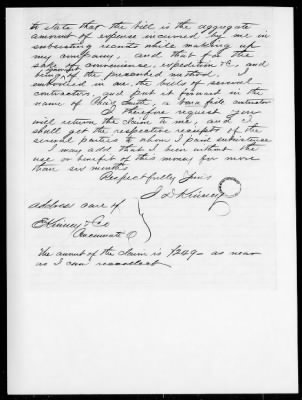 to state that the bill is the aggregate
amount of expense incurred by me in
subsisting recruits while making up
my company, and that for the
sake of convenience, expedition &c, and
being ignorant of the prescribed method, I
embodied in one, the bills of several
contractors, and put it forward in the
name of Smith, a bona fide contractor
I therefore request you
will return the claim to me, and I
shall get the respective receipts of the
several parties to whom I paid subsistence
I may add that I been without the
use or benefit of this money for more
than six months
Respectfully Yours
J D Kinney
Address care of
Kinney & Co
Cincinnati O
The amount of the claim is $249— as near
as I can recollect